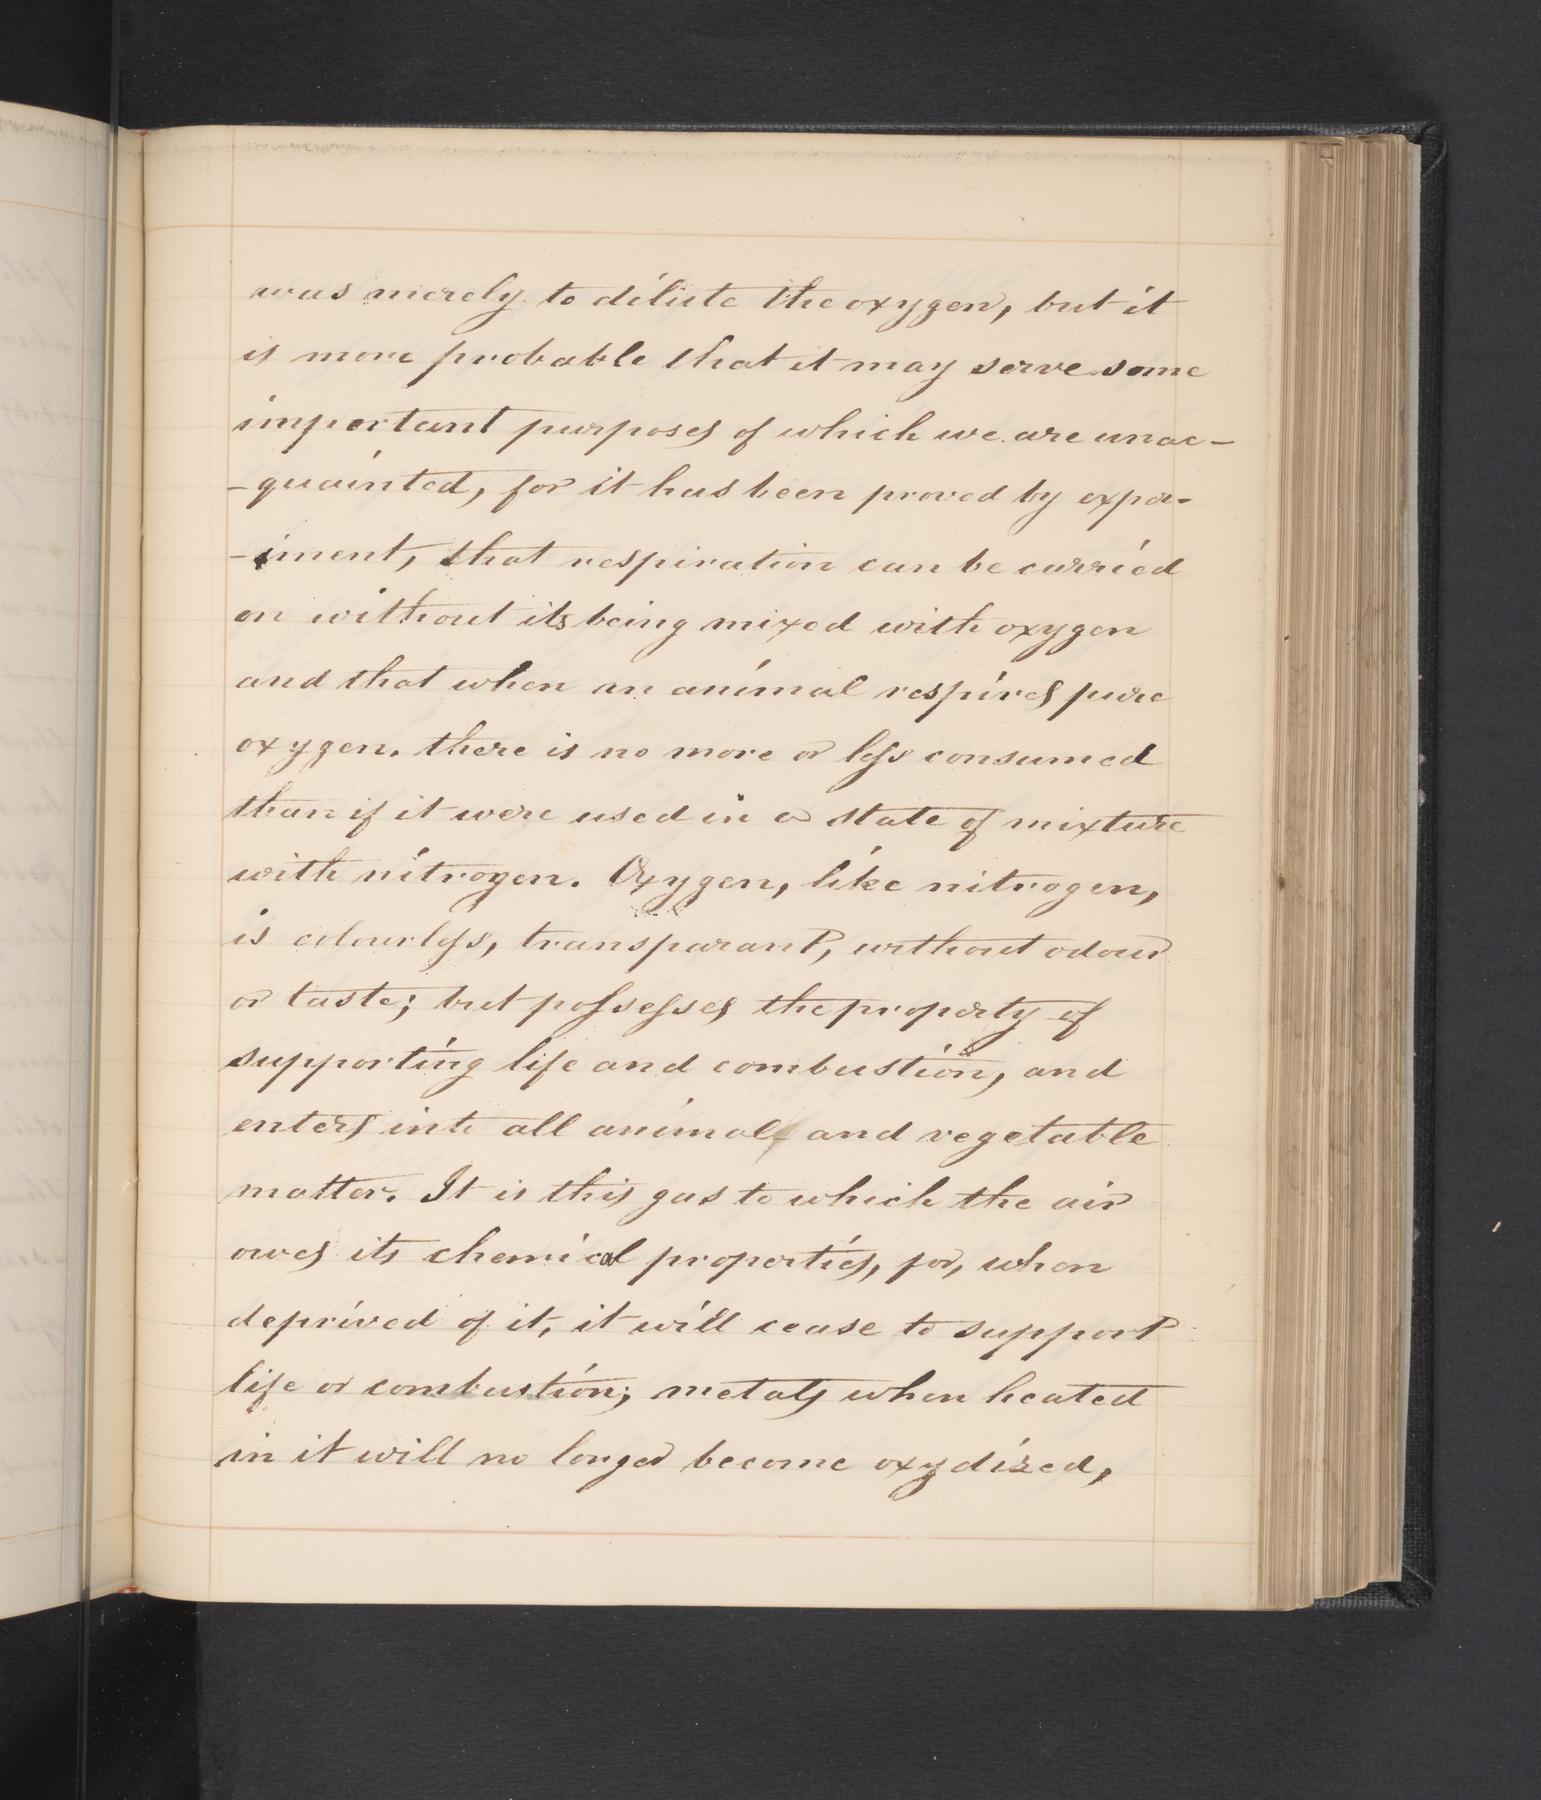 was merely to dilute the oxygen, but it
is more probable that it may serve some
important purposes of which we are unac-
-quainted, for it has been proved by exper-
-iment, that respiration can be carried
on without its being mixed with oxygen
and that when an animal respires pure
oxygen. there is no more or less consumed
than if it were used in a state of mixture
with nitrogen. Oxygen, like nitrogen,
is colourless, transparant, without odour
or taste; but possesses the property of
supporting life and combustion, and
enters into all animal and vegetable
matter. It is this gas to which the air
owes its chemical properties, for, when
deprived of it, it will cease to support
life or combustion; metals when heated
in it will no longer become oxydized,